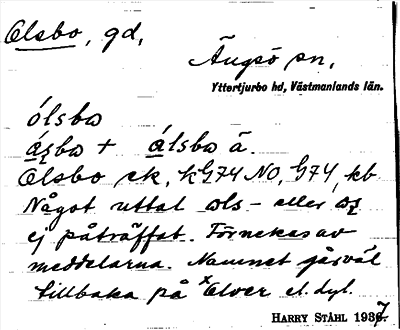 Olsbo, gd,
Ängsö sn,
Yttertjurbo hd, Västmanlands län.
ólsbω
ásbω + álsbω ä.
Olsbo ek, kG74 NO, G74, kb
Något uttal ωls- eller ωʂ
ej påträffat. Förnekas av
meddelarna. Namnet går väl
tillbaka på ˣElver el. dyl.
HARRY STÅHL 1937.